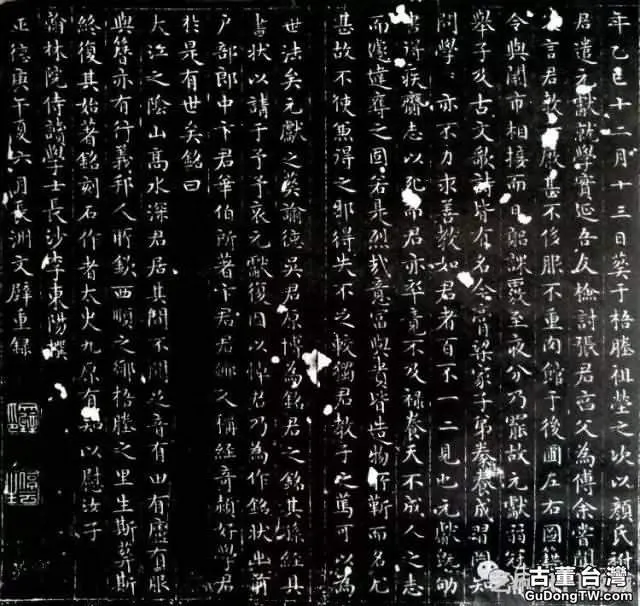 年乙巳十二月十三日葬于梧塍祖塋之次以顏氏祔
君遣元獻就學實延合友檢討張君亨父為傅余嘗聞
言君教元獻甚不後服不重肉館于後圃左右圖
令與闤市相接而日躬課覈至夜分乃罷故元獻弱冠
舉子及古文歌詩皆有名今膏梁家子弟豢養成習罔知
問學亦不力求善教如君者百不一二見也元獻
得疾齎志以死而君亦卒竟不及祿養天不成人之志
而嗟達尊之固若是烈哉竟富與貴皆造物所靳而名尤
甚故不使兼得之耶得失不足較獨君教子之篤可為
世法矣元獻之葬諭德吳君原博為銘君之銘其孫經具
書狀以請于予予哀元獻復因以悼君乃為作銘狀出前
戶部郎中卞君華伯所著卞君君鄉人稱經奇穎好學君
於是有世矣銘曰
大江之陰山高水深君居其間不聞足音有田有廬有服
與簪亦有行義邦人所欽西順之鄉梧塍之里生斯葬斯
終復其始著銘刻石作者太史九原有知以慰汝子
翰林院侍讀學士長沙李東陽撰
正德庚午夏六月長洲文壁重錄
古董台灣
GuDongTW.com